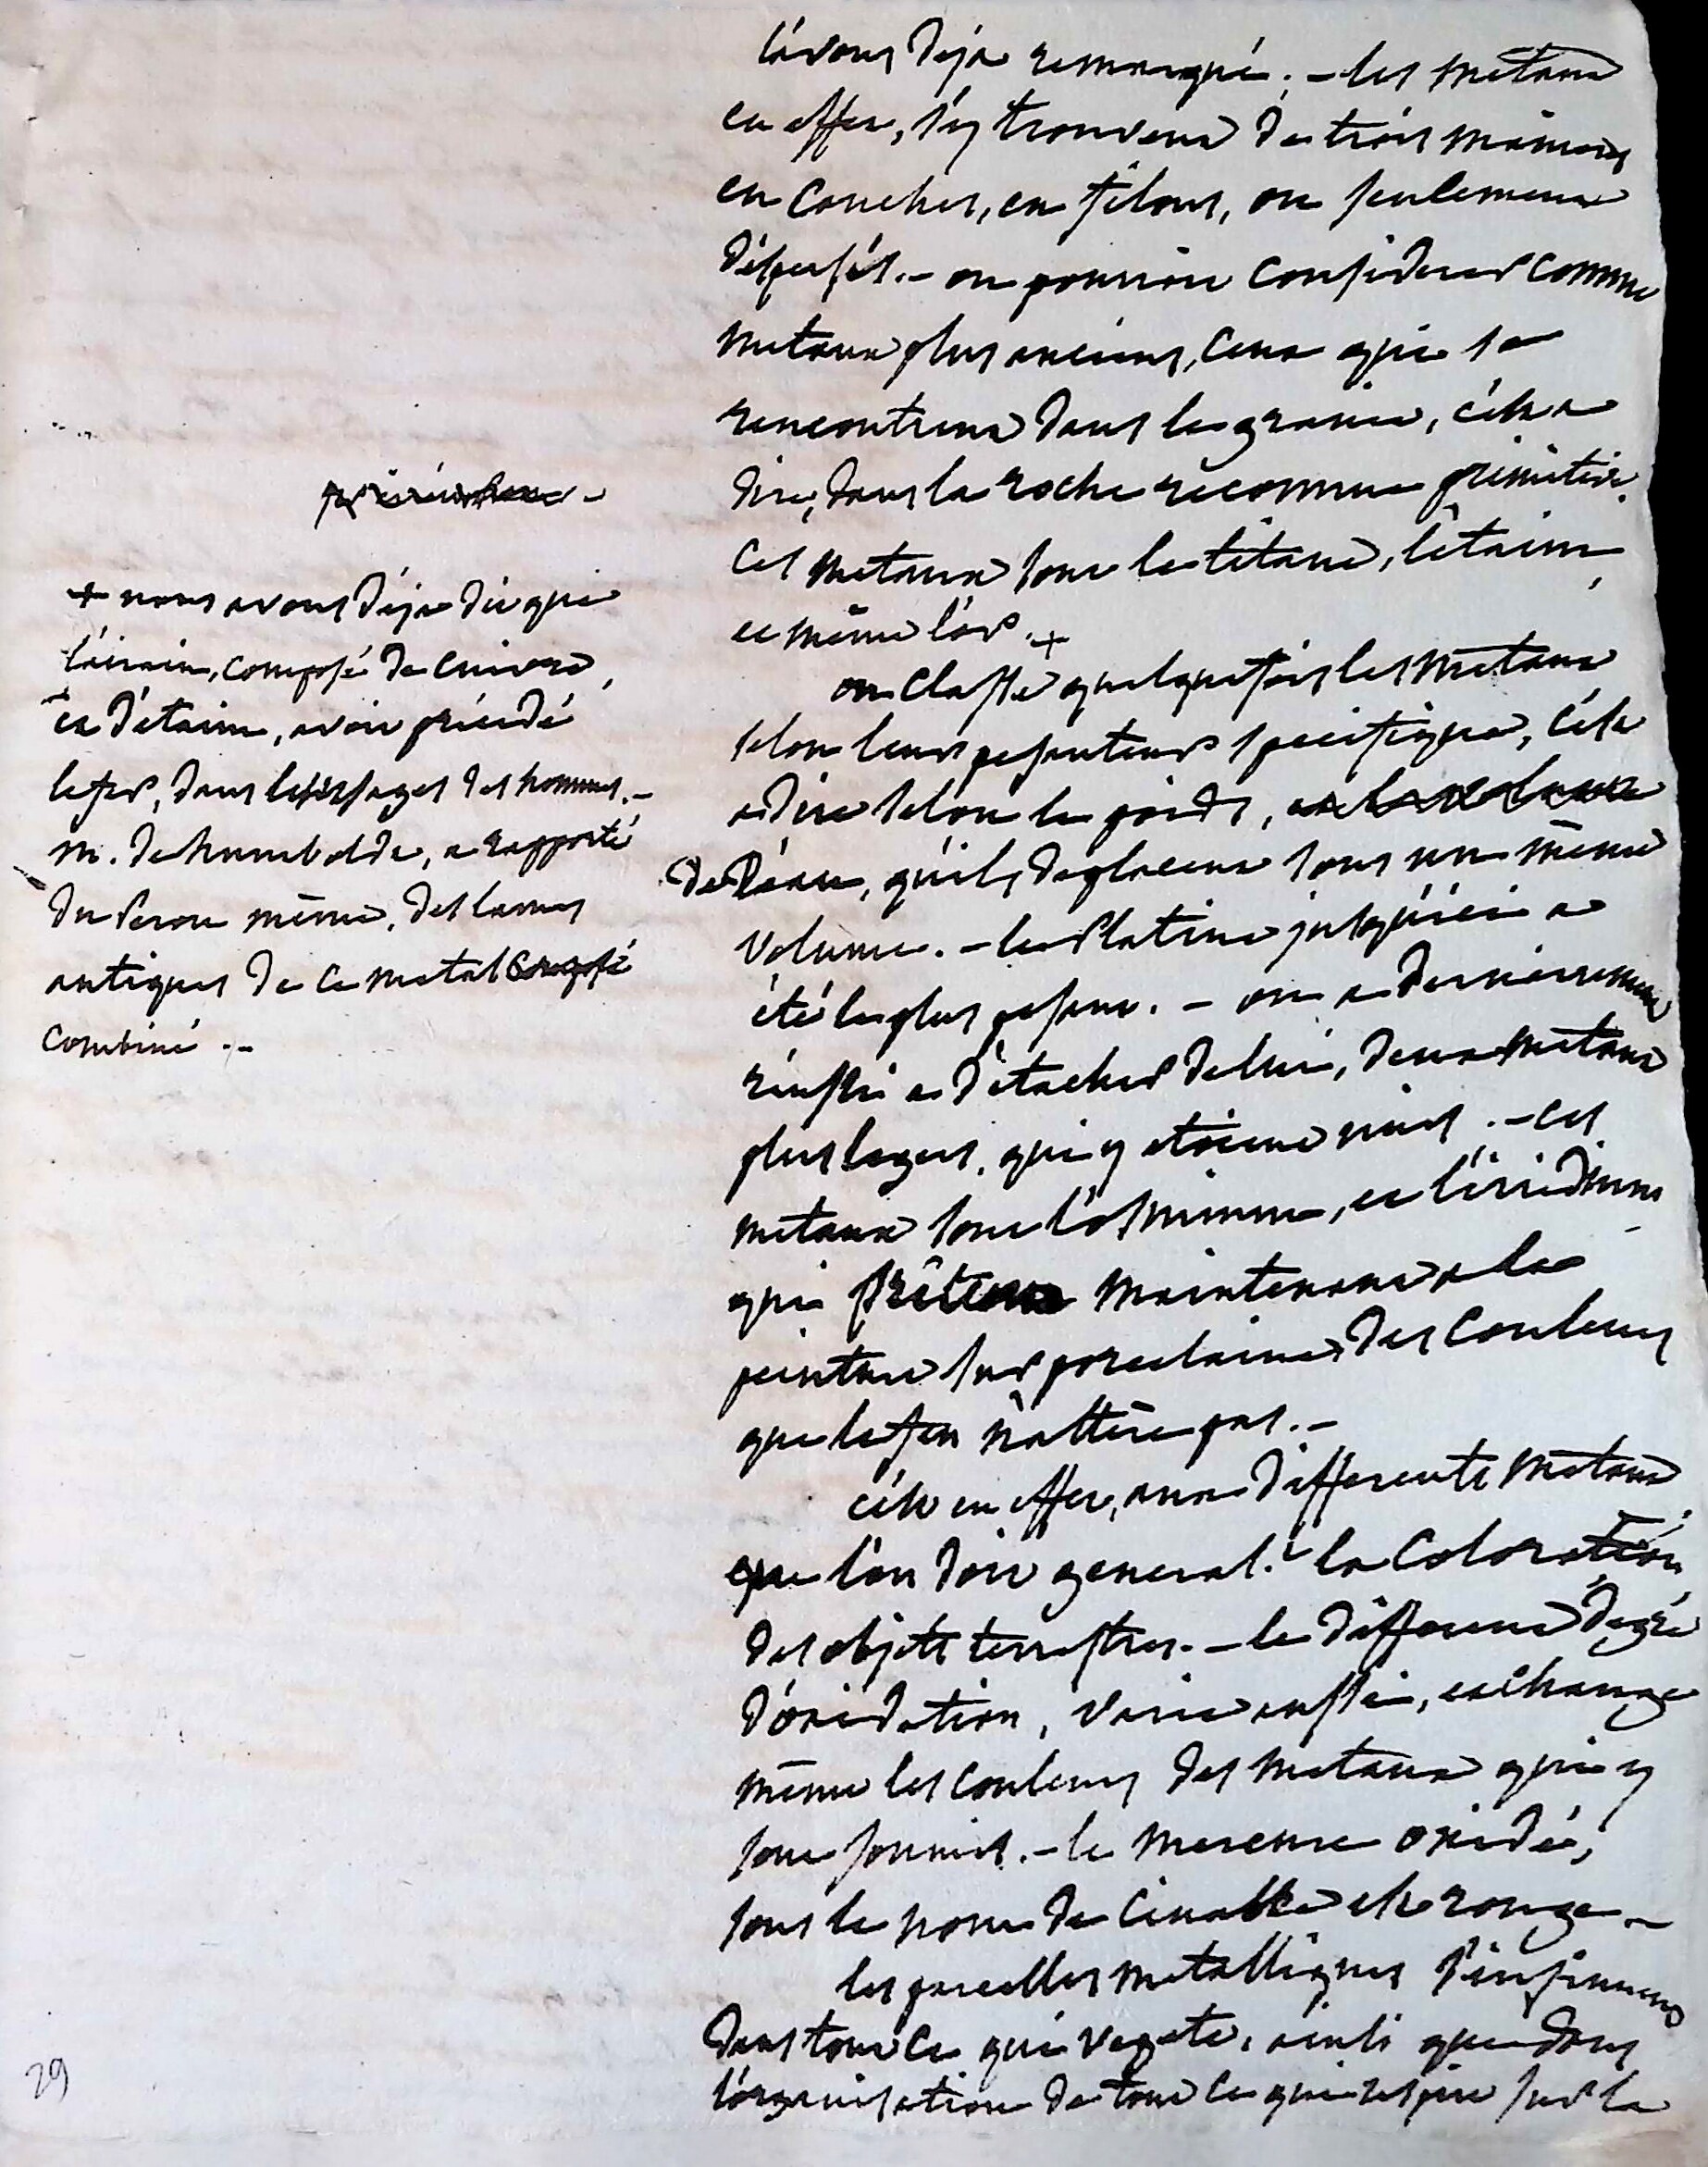 l'avons déja remarqué. – les métaux
en effet, s'y trouvent de trois maniéres
en couches, en filons, ou seulement
dispersés. – on pourroit considerer comme
metaux plus anciens, ceux qui se
rencontrent dans le granit, c'est a
dire, dans la roche reconnue primitive.
Ces metaux sont le titane, l'étaim,
et même l'or. +
on classe quelquefois les métaux
selon leur pesanteur specifique, c'est
a dire selon le poids,
de l'eau, qu'ils deplacent sous un même
volume. – le Platine jusqu'ici a
été le plus pesant. – on a dernierement
réussi a détacher de lui, deux métaux
plus legers, qui y etoient unis. – ces
metaux sont l'osmium, et l'iridium
qui prêtent maintenant a la
peinture sur porcelaine, des couleurs
que le feu n'altère pas. –
c'est en effet, aux differents métaux
que l'on doit general.t la coloration
des objets terrestres. – le different degré
d'oxidation, varie aussi, et change
même les couleurs des metaux qui y
sont soumis. – le mercure oxidé,
sous le nom de cinabre est rouge –
les parcelles metalliques s'insinuent
dans tout ce qui vegete, ainsi que dans
l'organisation de tout ce qui respire sur la
+ nous avons déja dit que
l'airain, composé de cuivre,
et d'étaim, avoit précédé
le fer, dans les usages des hommes. –
m. de humboldt, a rapporté
du Perou même, des lames
antiques de ce metal composé
combiné. –
29